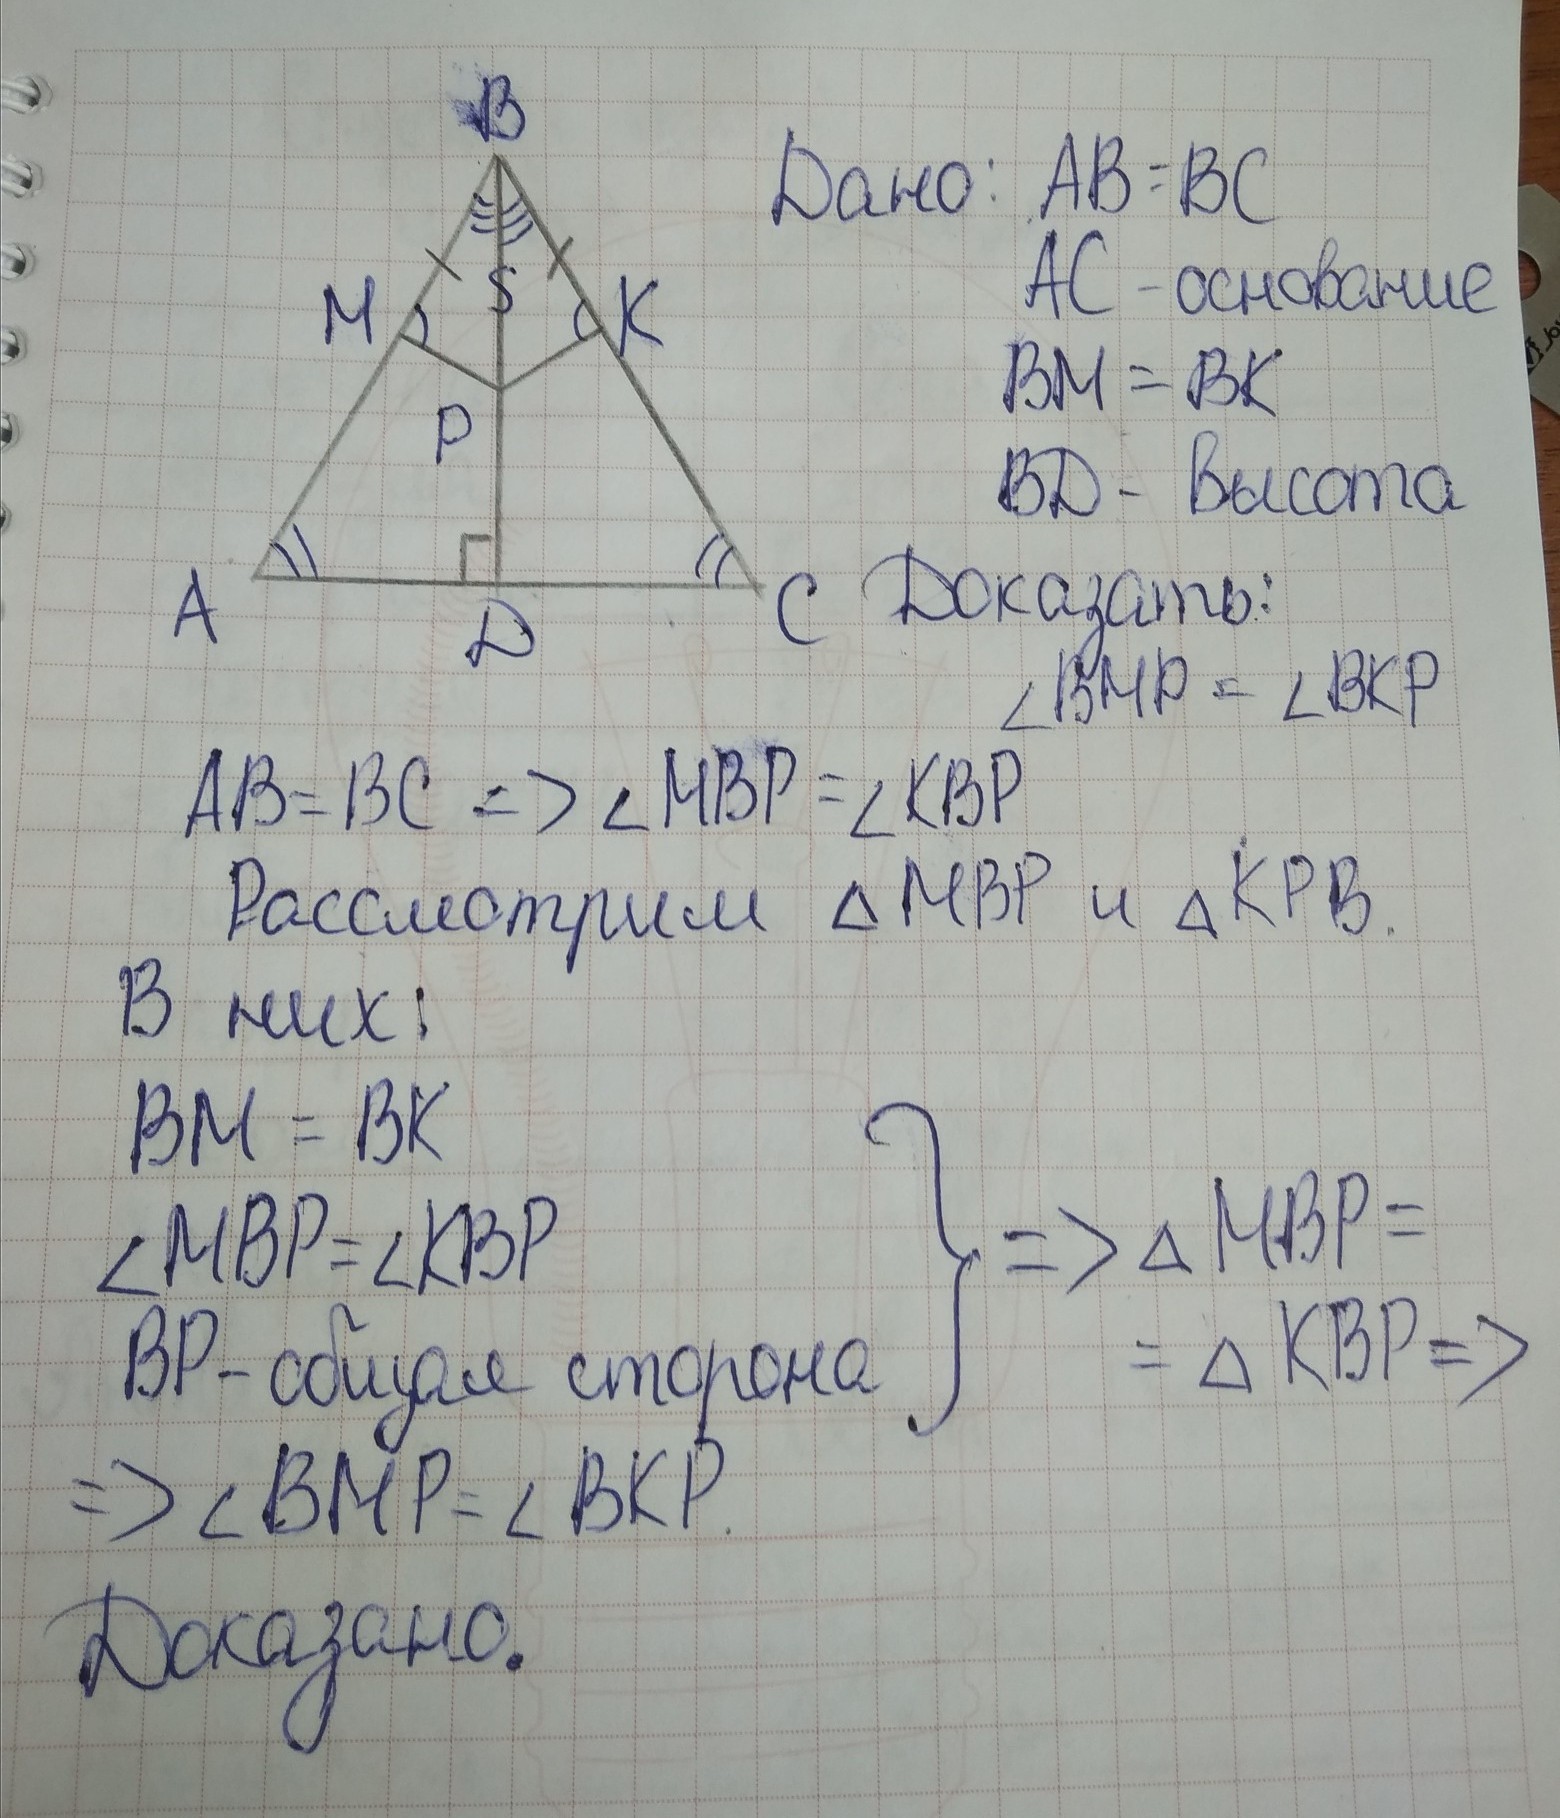 B
Дано: AB=BC
S
AC - основание
M
K
BM = BK
P
BD - высота
A
D
C
Доказать:
∠BMP = ∠BKP
AB=BC => ∠MBP=∠KBP
Рассмотрим △MBP и △KPB.
В них:
BM = BK
∠MBP=∠KBP
=> △MBP=
BP-общая сторона
= △KBP=>
=> ∠BMP=∠BKP.
Доказано.